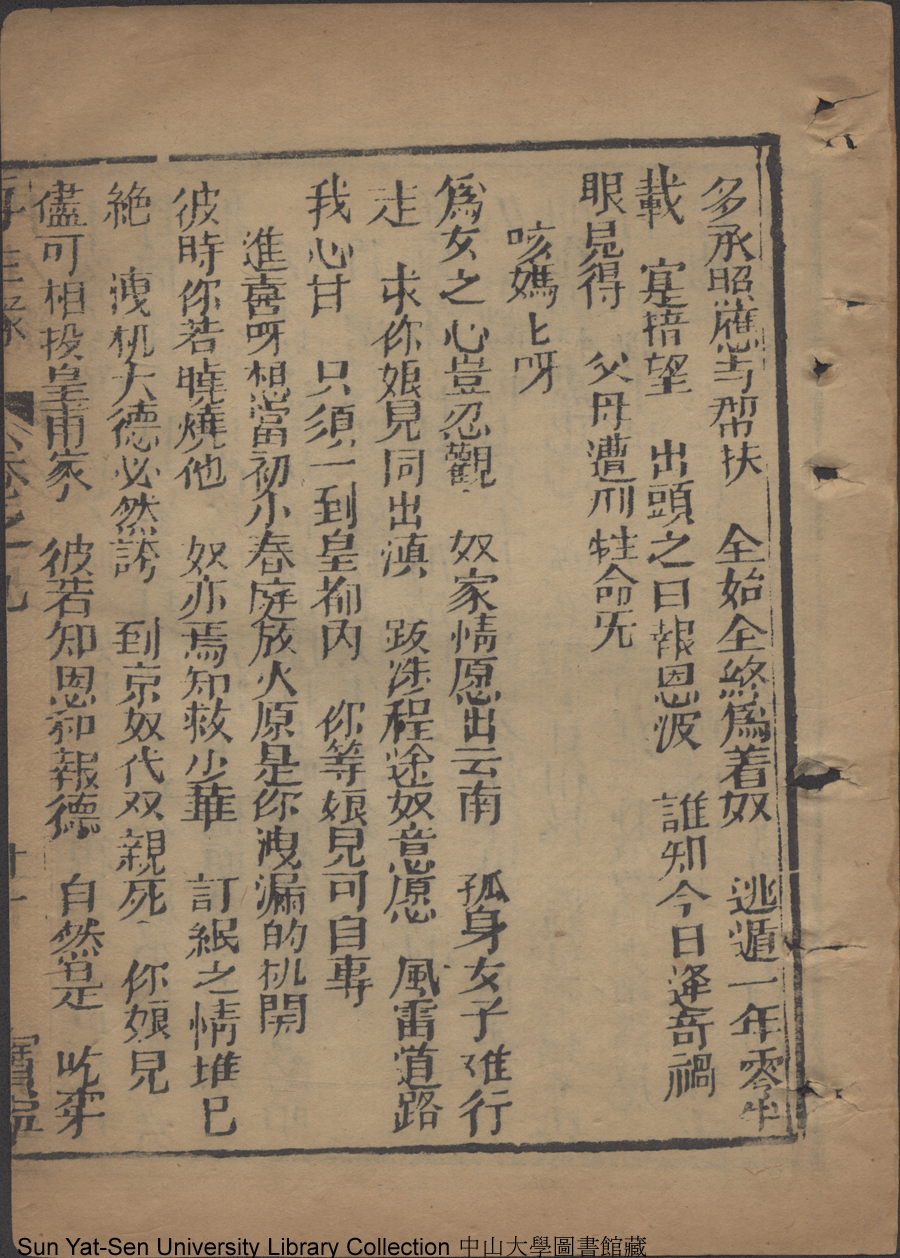 多承照應与帮扶　全始全終爲着奴　逃遁一年零半
載　寔捂望　出頭之日報恩波　誰知今日逢奇禍
眼見得　父母遭刑牲命旡
咳媽匕呀
爲女之心豈忍觀　奴家情愿出云南　孤身女子难行
走　求你娘兒同出滇　跋涉程途奴意愿　風雷道路
我心甘　只須一到皇都内　你等娘兒可自專
進喜呀想當初小春庭放火原是你洩漏的机關
彼時你若曉燒他　奴亦焉知救少華　訂絪之情堆已
絶　洩机大德必然誇　到京奴代双親死　你娘兒
儘可相投皇甫家　彼若知恩和報德　自然是
卷之九
Sun Yat-Sen University Library Collection 中山大學圖書館藏